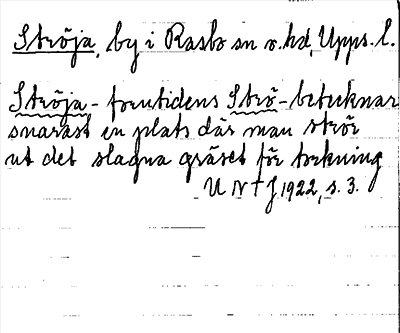 Ströja, by i Rasbo sn o. hd, Upps. l.
Ströja - forntidens Strö - betecknar
snarast en plats där man strör
ut det slagna gräset för torkning
UNTJ 1922, s. 3.